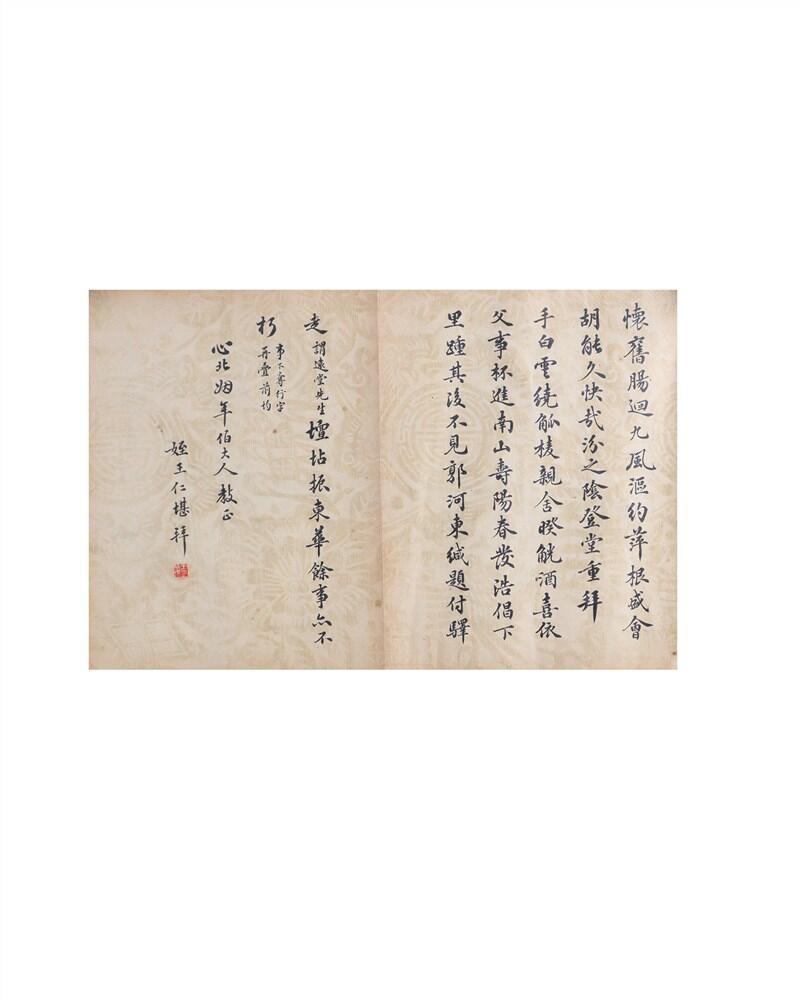 懷舊腸迴九風漚約萍根盛會
胡能久快哉汾之陰登堂重拜
手白雲繞觚棱親舍睽觥酒喜依
父事杯進南山壽陽春發浩倡下
里踵其後不見郭河東緘題付驛
走謂遠堂先生壇坫振東華餘事亦不
朽
事下奪行字
再疊前均
心北姻年伯大人教正
姪王仁堪拜